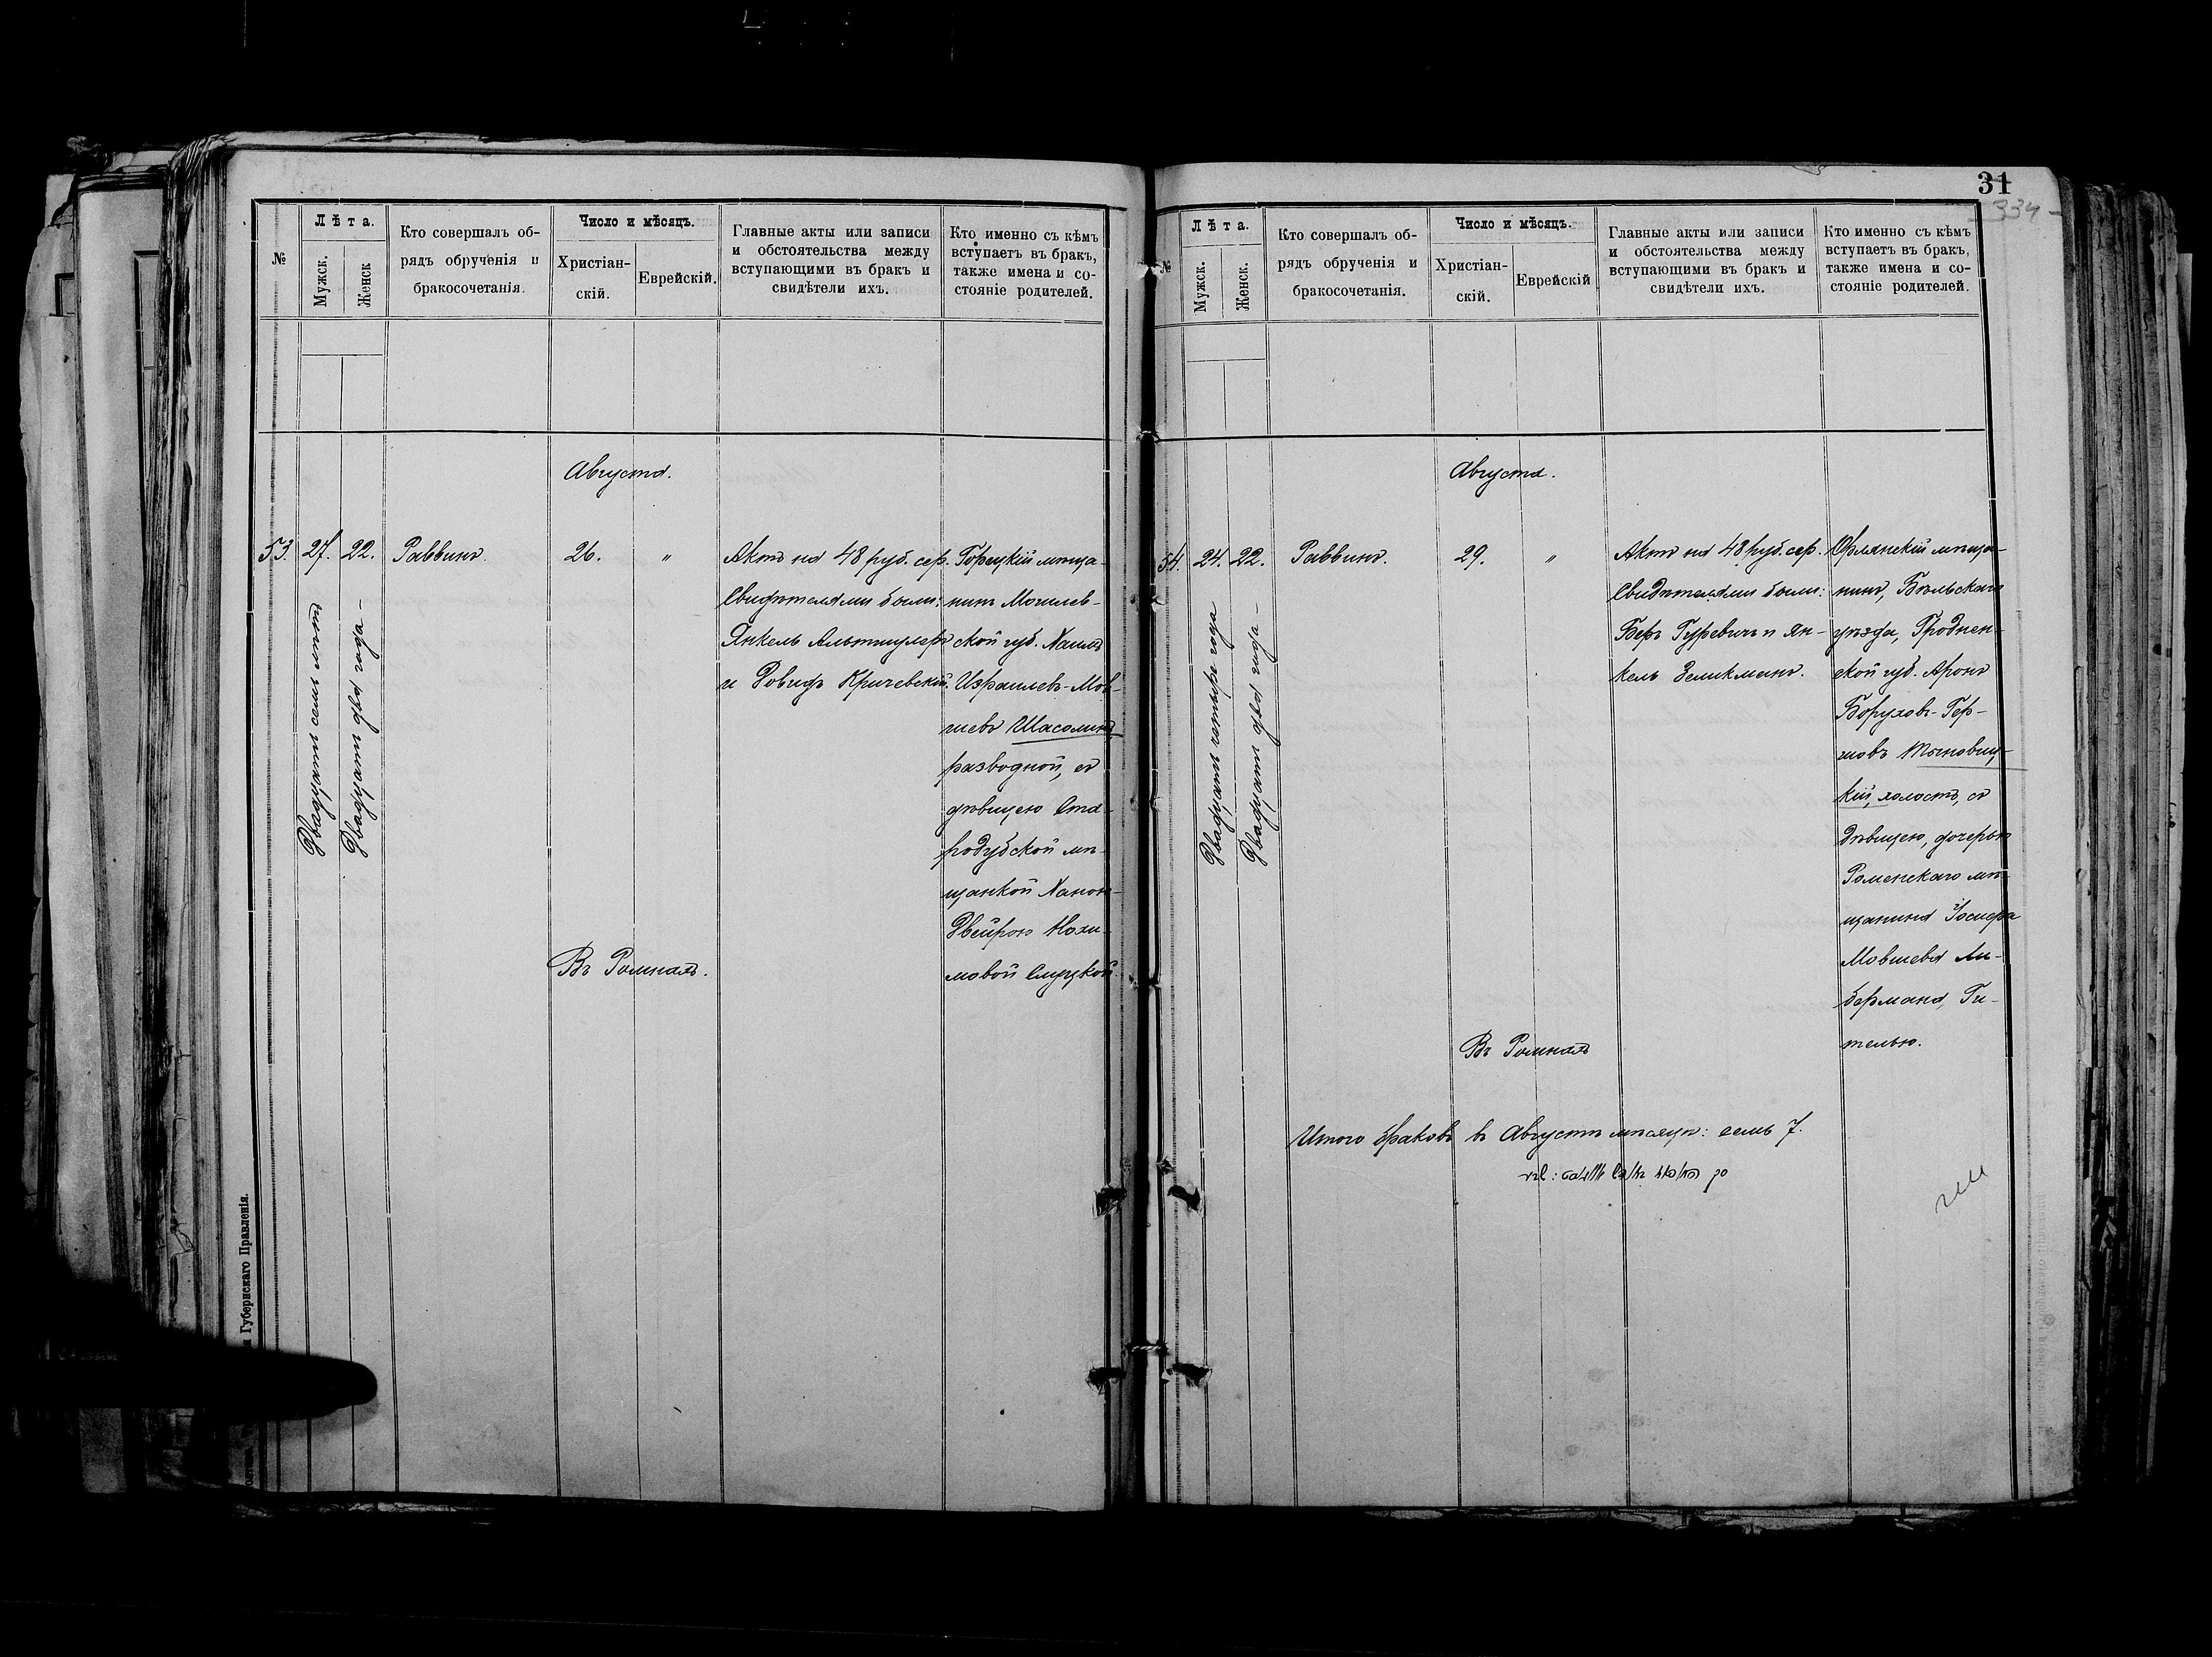 №
Лѣта.
Мужск.
Женск
Кто совершалъ об-
рядъ обрученія и
бракосочетанія.
Число и мѣсяцъ.
Христіан-
скій.
Еврейскій.
Главные акты или записи
и обстоятельства между
вступающими въ бракъ и
свидѣтели ихъ.
Кто именно съ кѣмъ
вступаетъ въ бракъ,
также имена и со-
стояніе родителей.
Августа.
53. 27. 22. Раввинъ. 26. "
Двадцать семь лѣтъ
Двадцать два года –
Актъ на 48 руб. сер.
Свидѣтелями были:
Янкель Альтшулеръ
и Довидъ Кричевскій.
Горецкій мѣща-
нинъ Могилев-
ской губ. Хаимъ
Израилевъ-Мов-
шевъ Шасоминъ
разводной, съ
дѣвицею Ста-
родубской мѣ-
щанкой Ханою-
Двейрою Нохи-
мовой Слуцкой.
Въ Ромнахъ.
и Губернскаго Правленія.
31
334
№
Лѣта.
Мужск.
Женск.
Кто совершалъ об-
рядъ обрученія и
бракосочетанія.
Число и мѣсяцъ.
Христіан-
скій.
Еврейскій
Главные акты или записи
и обстоятельства между
вступающими въ бракъ и
свидѣтели ихъ.
Кто именно съ кѣмъ
вступаетъ въ бракъ,
также имена и со-
стояніе родителей.
Августа.
54. 24. 22. Раввинъ. 29. "
Двадцать четыре года
Двадцать два года –
Актъ на 48 руб. сер.
Свидѣтелями были:
Беръ Гуревичъ и Ян-
кель Зеликманъ.
Орлянскій мѣща-
нинъ, Бѣльскаго
уѣзда, Гроднен-
ской губ. Аронъ
Боруховъ-Гер-
шовъ Тыковиц-
кій, холостъ, съ
дѣвицею, дочерью
Роменскаго мѣ-
щанина Іосифа
Мовшева Ли-
бермана, Ги-
телью.
Въ Ромнахъ
Итого браковъ въ Августѣ мѣсяцѣ: семь 7.